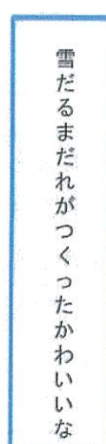 雪だるまだれがつくったかわいいな